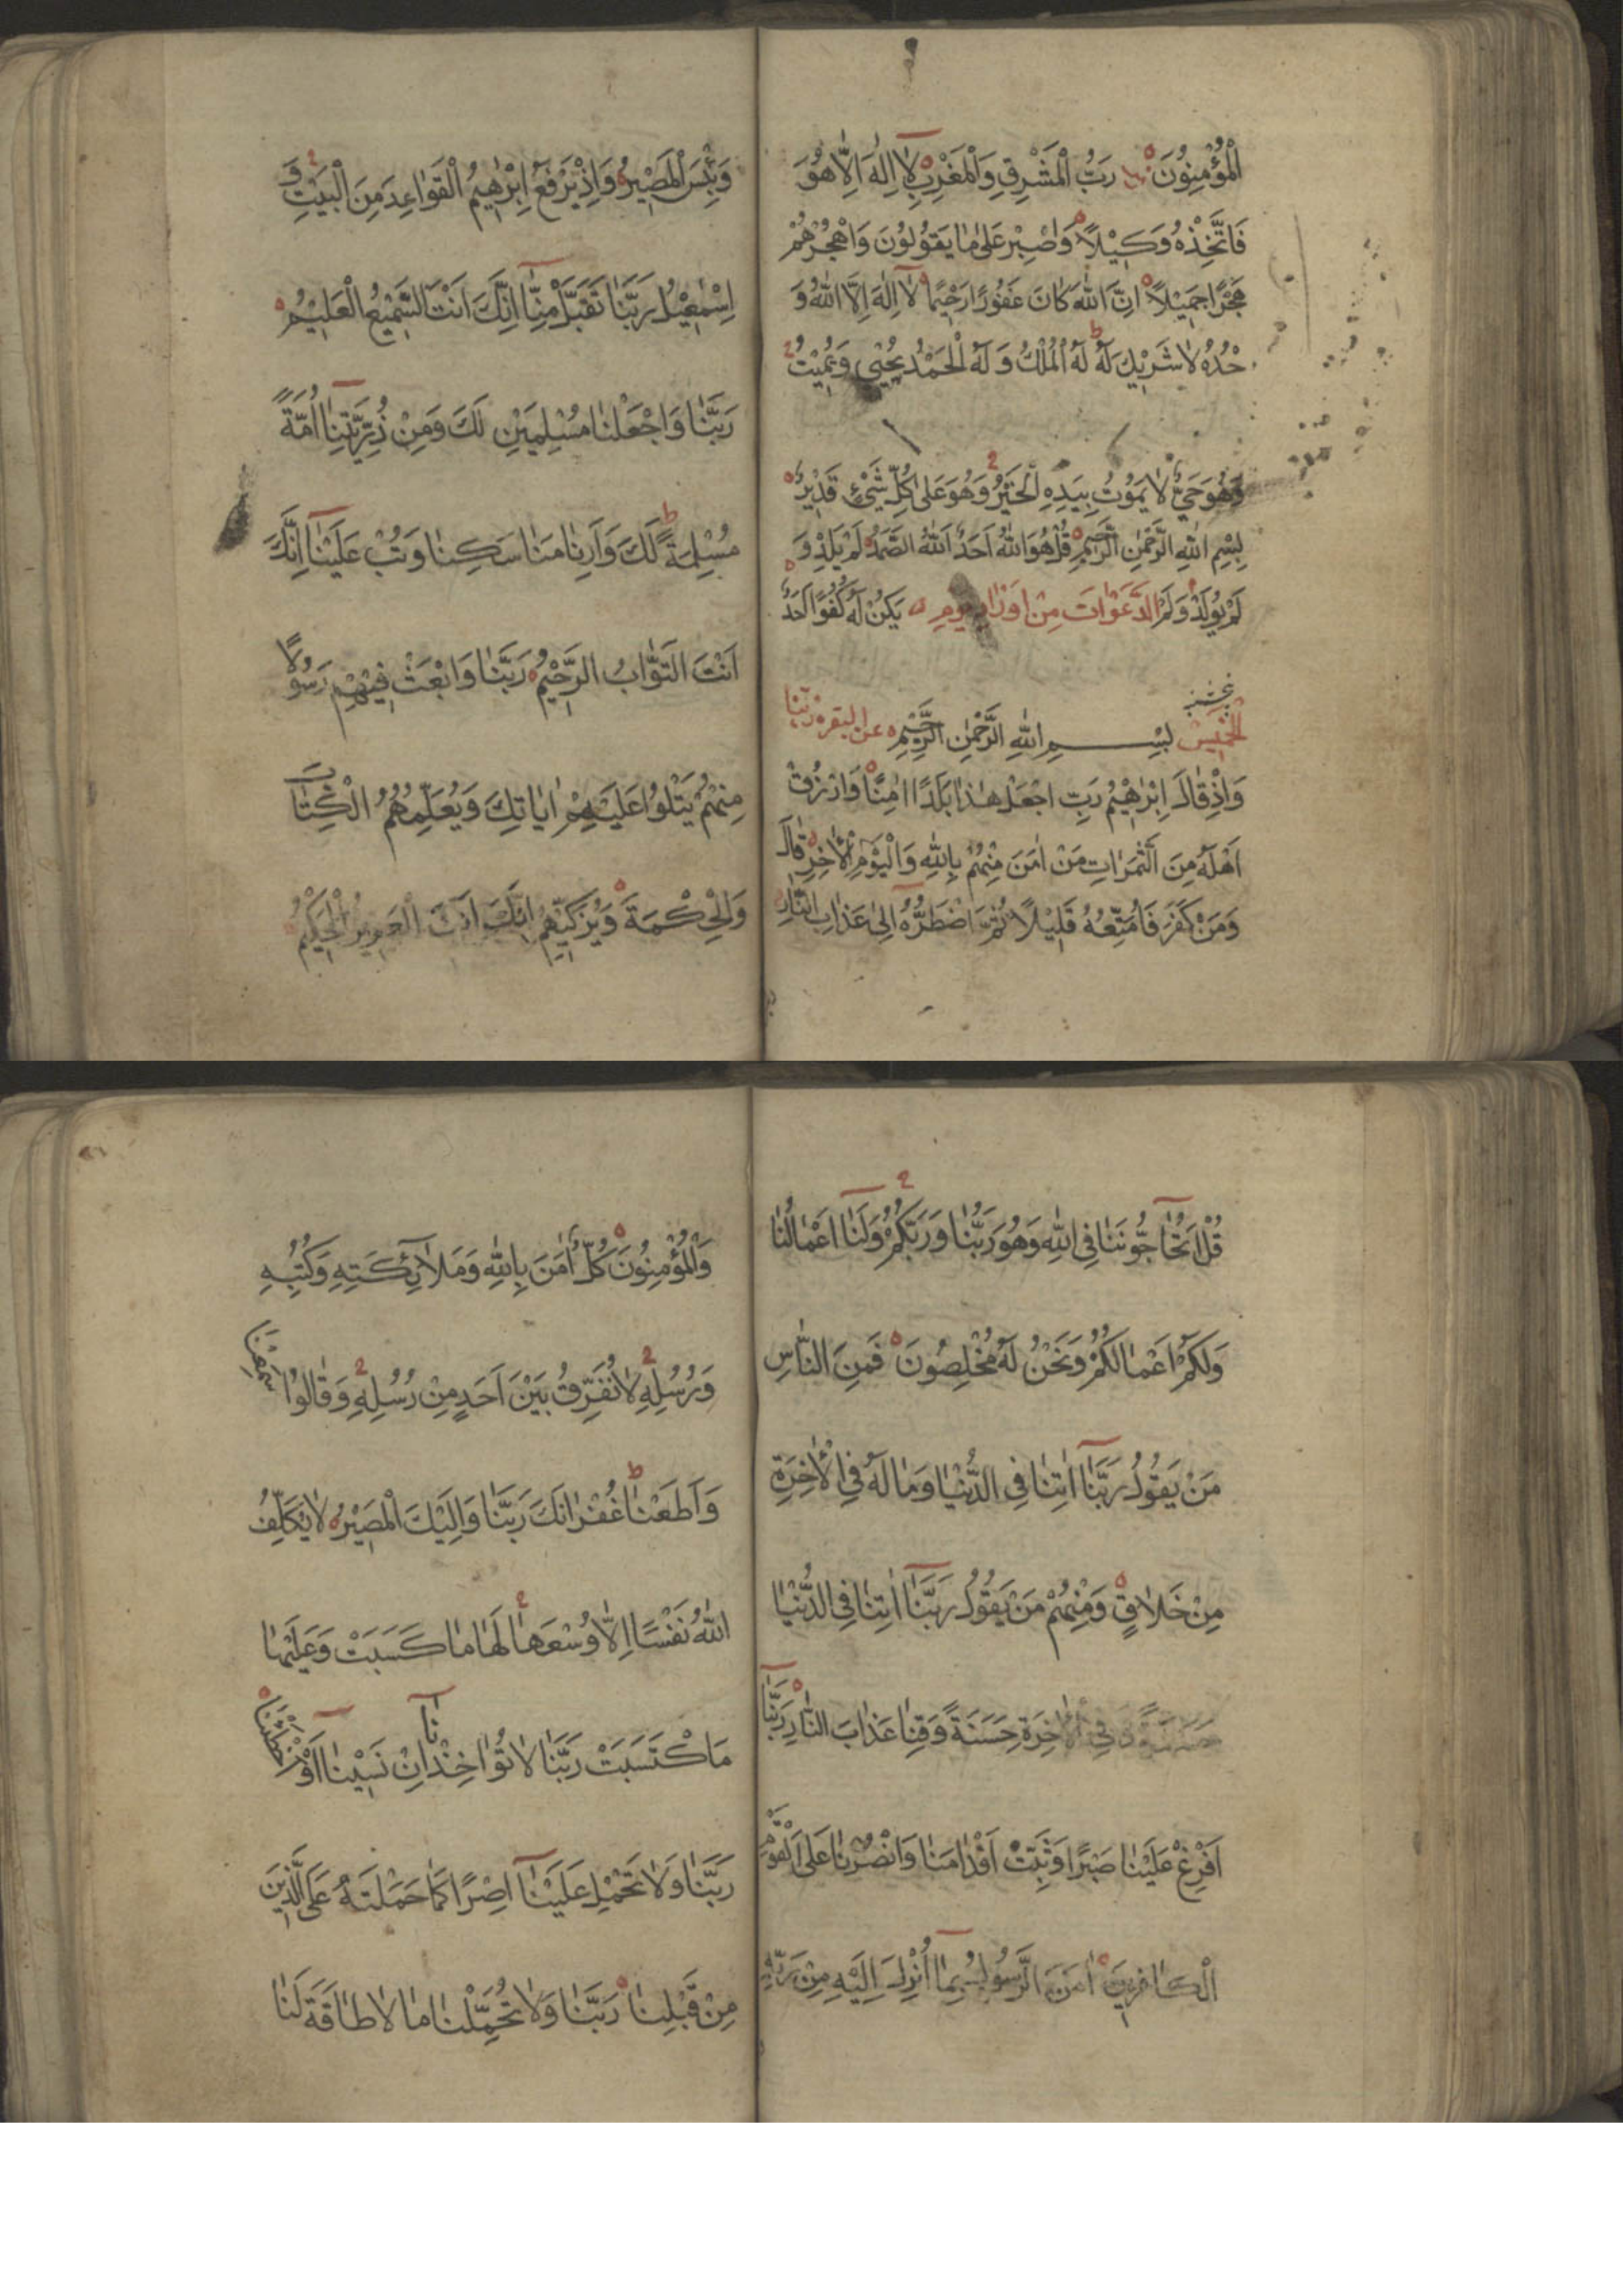 الْمُؤْمِنُونَ رَبُّ الْمَشْرِقِ وَالْمَغْرِبِ لَا اِلٰهَ اِلَّا هُوَ
فَاتَّخِذْهُ وَكِيْلًا وَاصْبِرْ عَلٰى مَا يَقُوْلُوْنَ وَاهْجُرْهُمْ
هَجْرًا جَمِيْلًا اِنَّ اللّٰهَ كَانَ غَفُوْرًا رَحِيْمًا لَا اِلٰهَ اِلَّا اللّٰهُ وَ
حْدَهُ لَا شَرِيْكَ لَهُ لَهُ الْمُلْكُ وَ لَهُ الْحَمْدُ يُحْيِى وَيُمِيْتُ
وَهُوَ حَيٌّ لَا يَمُوْتُ بِيَدِهِ الْخَيْرُ وَهُوَ عَلٰى كُلِّ شَىْءٍ قَدِيْرٌ
بِسْمِ اللّٰهِ الرَّحْمٰنِ الرَّحِيْمِ قُلْ هُوَ اللّٰهُ اَحَدٌ اَللّٰهُ الصَّمَدُ لَمْ يَلِدْ وَ
لَمْ يُوْلَدْ وَلَمْ الدَّعَوَاتَ مِنْ اَوْرَادِ يَوْمِ يَكُنْ لَهُ كُفُوًا اَحَدٌ
الْخَمِيْسْ بِسْمِ اللّٰهِ الرَّحْمٰنِ الرَّحِيْمِ عن البقره ربّنا
وَاِذْ قَالَ اِبْرٰهِيْمُ رَبِّ اجْعَلْ هٰذَا بَلَدًا اٰمِنًا وَارْزُقْ
اَهْلَهُ مِنَ الثَّمَرَاتِ مَنْ اٰمَنَ مِنْهُمْ بِاللّٰهِ وَالْيَوْمِ الْاٰخِرِ قَالَ
وَمَنْ كَفَرَ فَاُمَتِّعُهُ قَلِيْلًا ثُمَّ اَضْطَرُّهُ اِلٰى عَذَابِ النَّارِ
وَبِئْسَ الْمَصِيْرُ وَاِذْ يَرْفَعُ اِبْرٰهِيْمُ الْقَوَاعِدَ مِنَ الْبَيْتِ وَ
اِسْمٰعِيْلُ رَبَّنَا تَقَبَّلْ مِنَّا اِنَّكَ اَنْتَ السَّمِيْعُ الْعَلِيْمُ
رَبَّنَا وَاجْعَلْنَا مُسْلِمَيْنِ لَكَ وَمِنْ ذُرِّيَّتِنَا اُمَّةً
مُسْلِمَةً لَكَ وَاَرِنَا مَنَاسِكَنَا وَتُبْ عَلَيْنَا اِنَّكَ
اَنْتَ التَّوَّابُ الرَّحِيْمُ رَبَّنَا وَابْعَثْ فِيْهِمْ رَسُوْلًا
مِنْهُمْ يَتْلُوْا عَلَيْهِمْ اٰيَاتِكَ وَيُعَلِّمُهُمُ الْكِتَابَ
وَالْحِكْمَةَ وَيُزَكِّيْهِمْ اِنَّكَ اَنْتَ الْعَزِيْزُ الْحَكِيْمُ
قُلْ اَتُحَاجُّوْنَنَا فِى اللّٰهِ وَهُوَ رَبُّنَا وَرَبُّكُمْ وَلَنَا اَعْمَالُنَا
وَلَكُمْ اَعْمَالُكُمْ وَنَحْنُ لَهُ مُخْلِصُوْنَ فَمِنَ النَّاسِ
مَنْ يَقُوْلُ رَبَّنَا اٰتِنَا فِى الدُّنْيَا وَمَا لَهُ فِى الْاٰخِرَةِ
مِنْ خَلَاقٍ وَمِنْهُمْ مَنْ يَقُوْلُ رَبَّنَا اٰتِنَا فِى الدُّنْيَا
حَسَنَةً وَفِى الْاٰخِرَةِ حَسَنَةً وَقِنَا عَذَابَ النَّارِ رَبَّنَا
اَفْرِغْ عَلَيْنَا صَبْرًا وَثَبِّتْ اَقْدَامَنَا وَانْصُرْنَا عَلَى الْقَوْمِ
الْكَافِرِيْنَ اٰمَنَ الرَّسُوْلُ بِمَا اُنْزِلَ اِلَيْهِ مِنْ رَبِّهِ
وَالْمُؤْمِنُوْنَ كُلٌّ اٰمَنَ بِاللّٰهِ وَمَلَائِكَتِهِ وَكُتُبِهِ
وَرُسُلِهِ لَا نُفَرِّقُ بَيْنَ اَحَدٍ مِنْ رُسُلِهِ وَقَالُوْا سَمِعْنَا
وَاَطَعْنَا غُفْرَانَكَ رَبَّنَا وَاِلَيْكَ الْمَصِيْرُ لَا يُكَلِّفُ
اللّٰهُ نَفْسًا اِلَّا وُسْعَهَا لَهَا مَا كَسَبَتْ وَعَلَيْهَا
مَا كْتَسَبَتْ رَبَّنَا لَا تُؤَاخِذْنَا اِنْ نَسِيْنَا اَوْ اَخْطَأْنَا
رَبَّنَا وَلَا تَحْمِلْ عَلَيْنَا اِصْرًا كَمَا حَمَلْتَهُ عَلَى الَّذِيْنَ
مِنْ قَبْلِنَا رَبَّنَا وَلَا تُحَمِّلْنَا مَا لَا طَاقَةَ لَنَا